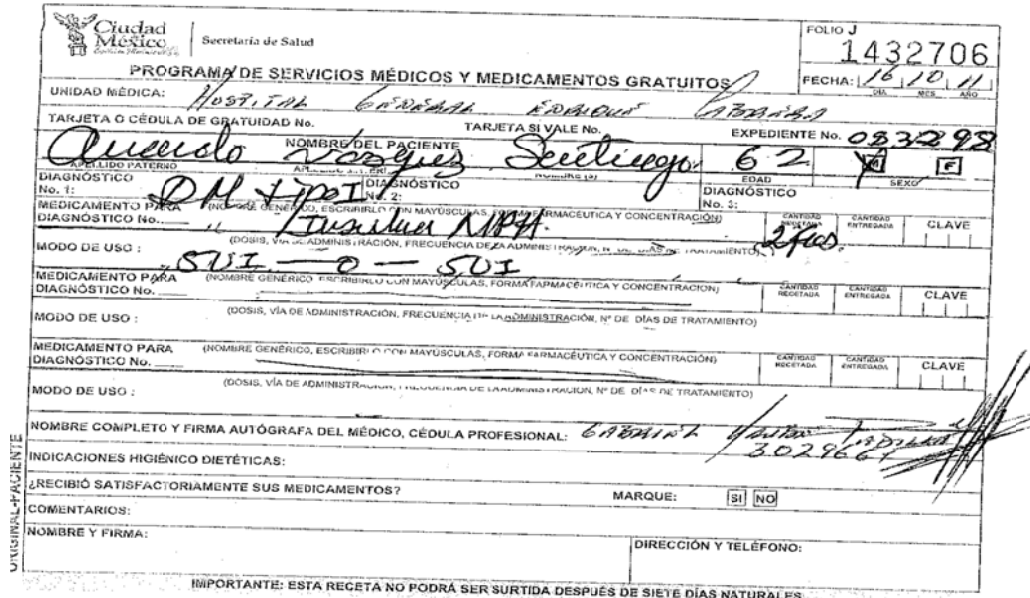 Ciudad
México
Secretaría de Salud
FOLIO J
1432706
PROGRAMA DE SERVICIOS MÉDICOS Y MEDICAMENTOS GRATUITOS
FECHA: 16 10 11
DIA MES AÑO
UNIDAD MÉDICA: HOSPITAL GENERAL ENRIQUE CABRERA
TARJETA O CÉDULA DE GRATUIDAD No. TARJETA SI VALE No. EXPEDIENTE No. 083298
NOMBRE DEL PACIENTE
Vazquez Santiago 62 M F
APELLIDO PATERNO NOMBRE (S) EDAD SEXO
DIAGNÓSTICO No. 1: DM tipo I DIAGNÓSTICO No. 2: DIAGNÓSTICO No. 3:
MEDICAMENTO PARA DIAGNÓSTICO No. (NOMBRE GENÉRICO, ESCRIBIRLO CON MAYÚSCULAS, FORMA FARMACÉUTICA Y CONCENTRACIÓN) CANTIDAD RECETADA CANTIDAD ENTREGADA CLAVE
Insulina NPH. 2 fcos.
MODO DE USO : (DOSIS, VÍA DE ADMINISTRACIÓN, FRECUENCIA DE LA ADMINISTRACIÓN, N° DE DÍAS DE TRATAMIENTO)
5UI — 0 — 5UI
MEDICAMENTO PARA DIAGNÓSTICO No. (NOMBRE GENÉRICO, ESCRIBIRLO CON MAYÚSCULAS, FORMA FARMACÉUTICA Y CONCENTRACIÓN) CANTIDAD RECETADA CANTIDAD ENTREGADA CLAVE
MODO DE USO : (DOSIS, VÍA DE ADMINISTRACIÓN, FRECUENCIA DE LA ADMINISTRACIÓN, N° DE DÍAS DE TRATAMIENTO)
MEDICAMENTO PARA DIAGNÓSTICO No. (NOMBRE GENÉRICO, ESCRIBIRLO CON MAYÚSCULAS, FORMA FARMACÉUTICA Y CONCENTRACIÓN) CANTIDAD RECETADA CANTIDAD ENTREGADA CLAVE
MODO DE USO : (DOSIS, VÍA DE ADMINISTRACIÓN, FRECUENCIA DE LA ADMINISTRACIÓN, N° DE DÍAS DE TRATAMIENTO)
NOMBRE COMPLETO Y FIRMA AUTÓGRAFA DEL MÉDICO, CÉDULA PROFESIONAL: GABRIEL
INDICACIONES HIGIÉNICO DIETÉTICAS:
¿RECIBIÓ SATISFACTORIAMENTE SUS MEDICAMENTOS? MARQUE: SI NO
COMENTARIOS:
NOMBRE Y FIRMA: DIRECCIÓN Y TELÉFONO:
ORIGINAL-PACIENTE
IMPORTANTE: ESTA RECETA NO PODRÁ SER SURTIDA DESPUÉS DE SIETE DÍAS NATURALES